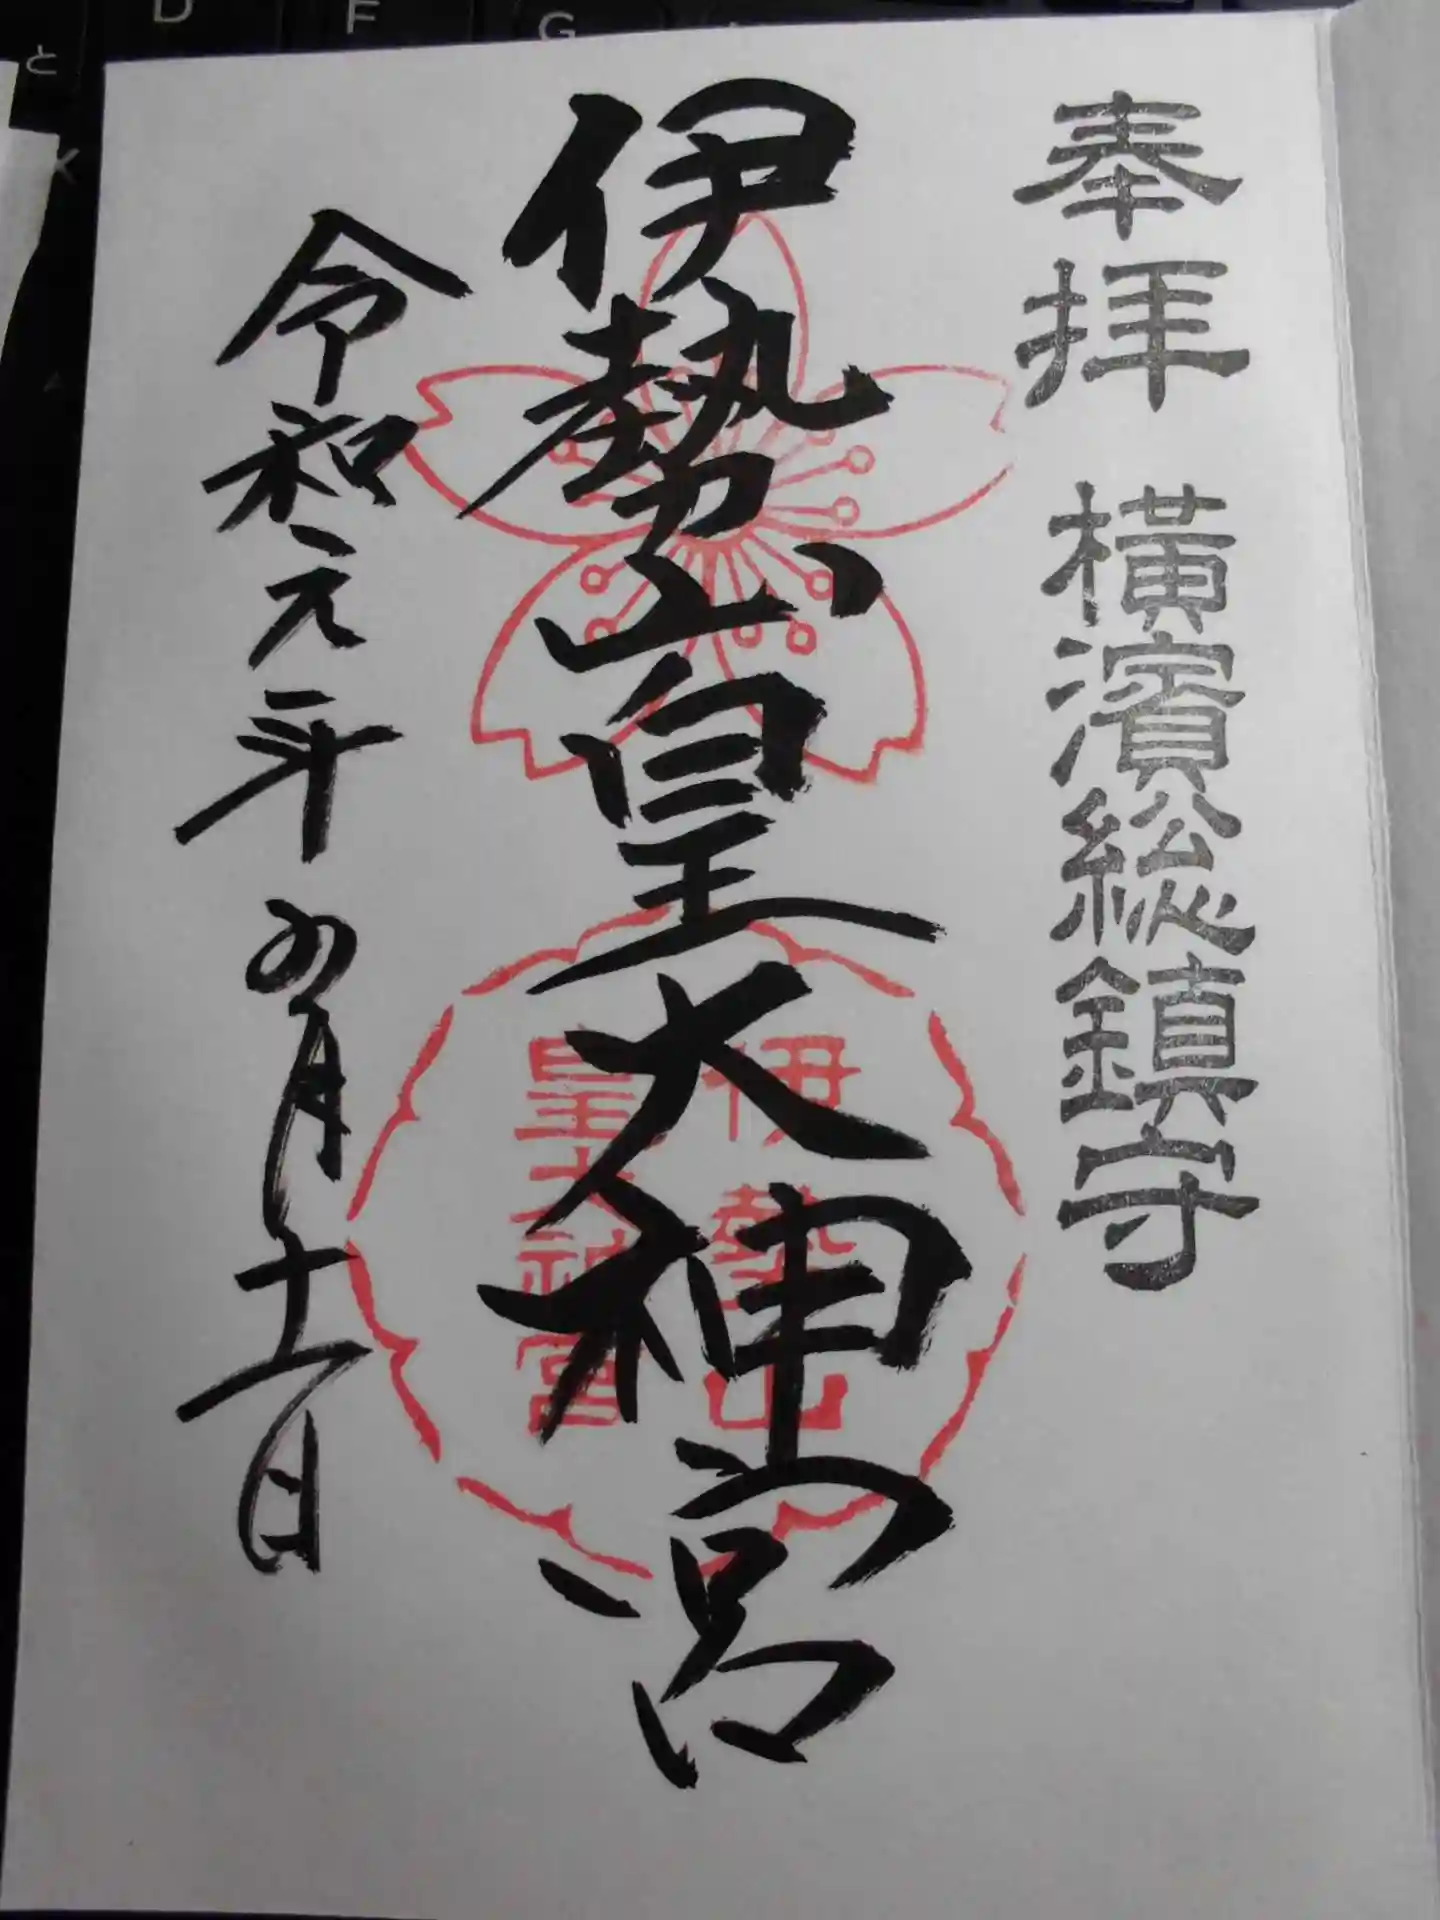 奉拝 横濱総鎮守
伊勢山皇大神宮
伊勢山
皇大神宮
令和元年 月十一日
D
F
G
と
K